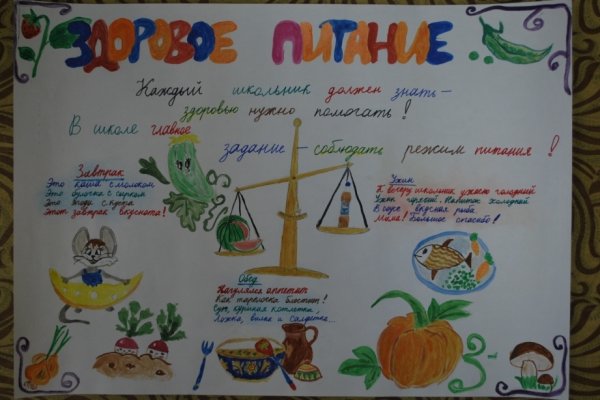 ЗДОРОВОЕ ПИТАНИЕ
Каждый школьник должен знать –
здоровью нужно помогать!
В школе главное
задание – соблюдать режим питания!
Завтрак
Это каша с молоком
Это булочка с сырком
Это ягоды с куста
Этот завтрак вкуснота!
Ужин
К вечеру школьник ужасно голодный
Ужин чужсий. Напиток холодный
В соусе вкусная рыба
Мама! Большое спасибо!
Обед
Нагулялся аппетит
Как тарелочка блестит!
Суп, куриная котлетка,
Ложка, вилка и салфетка...